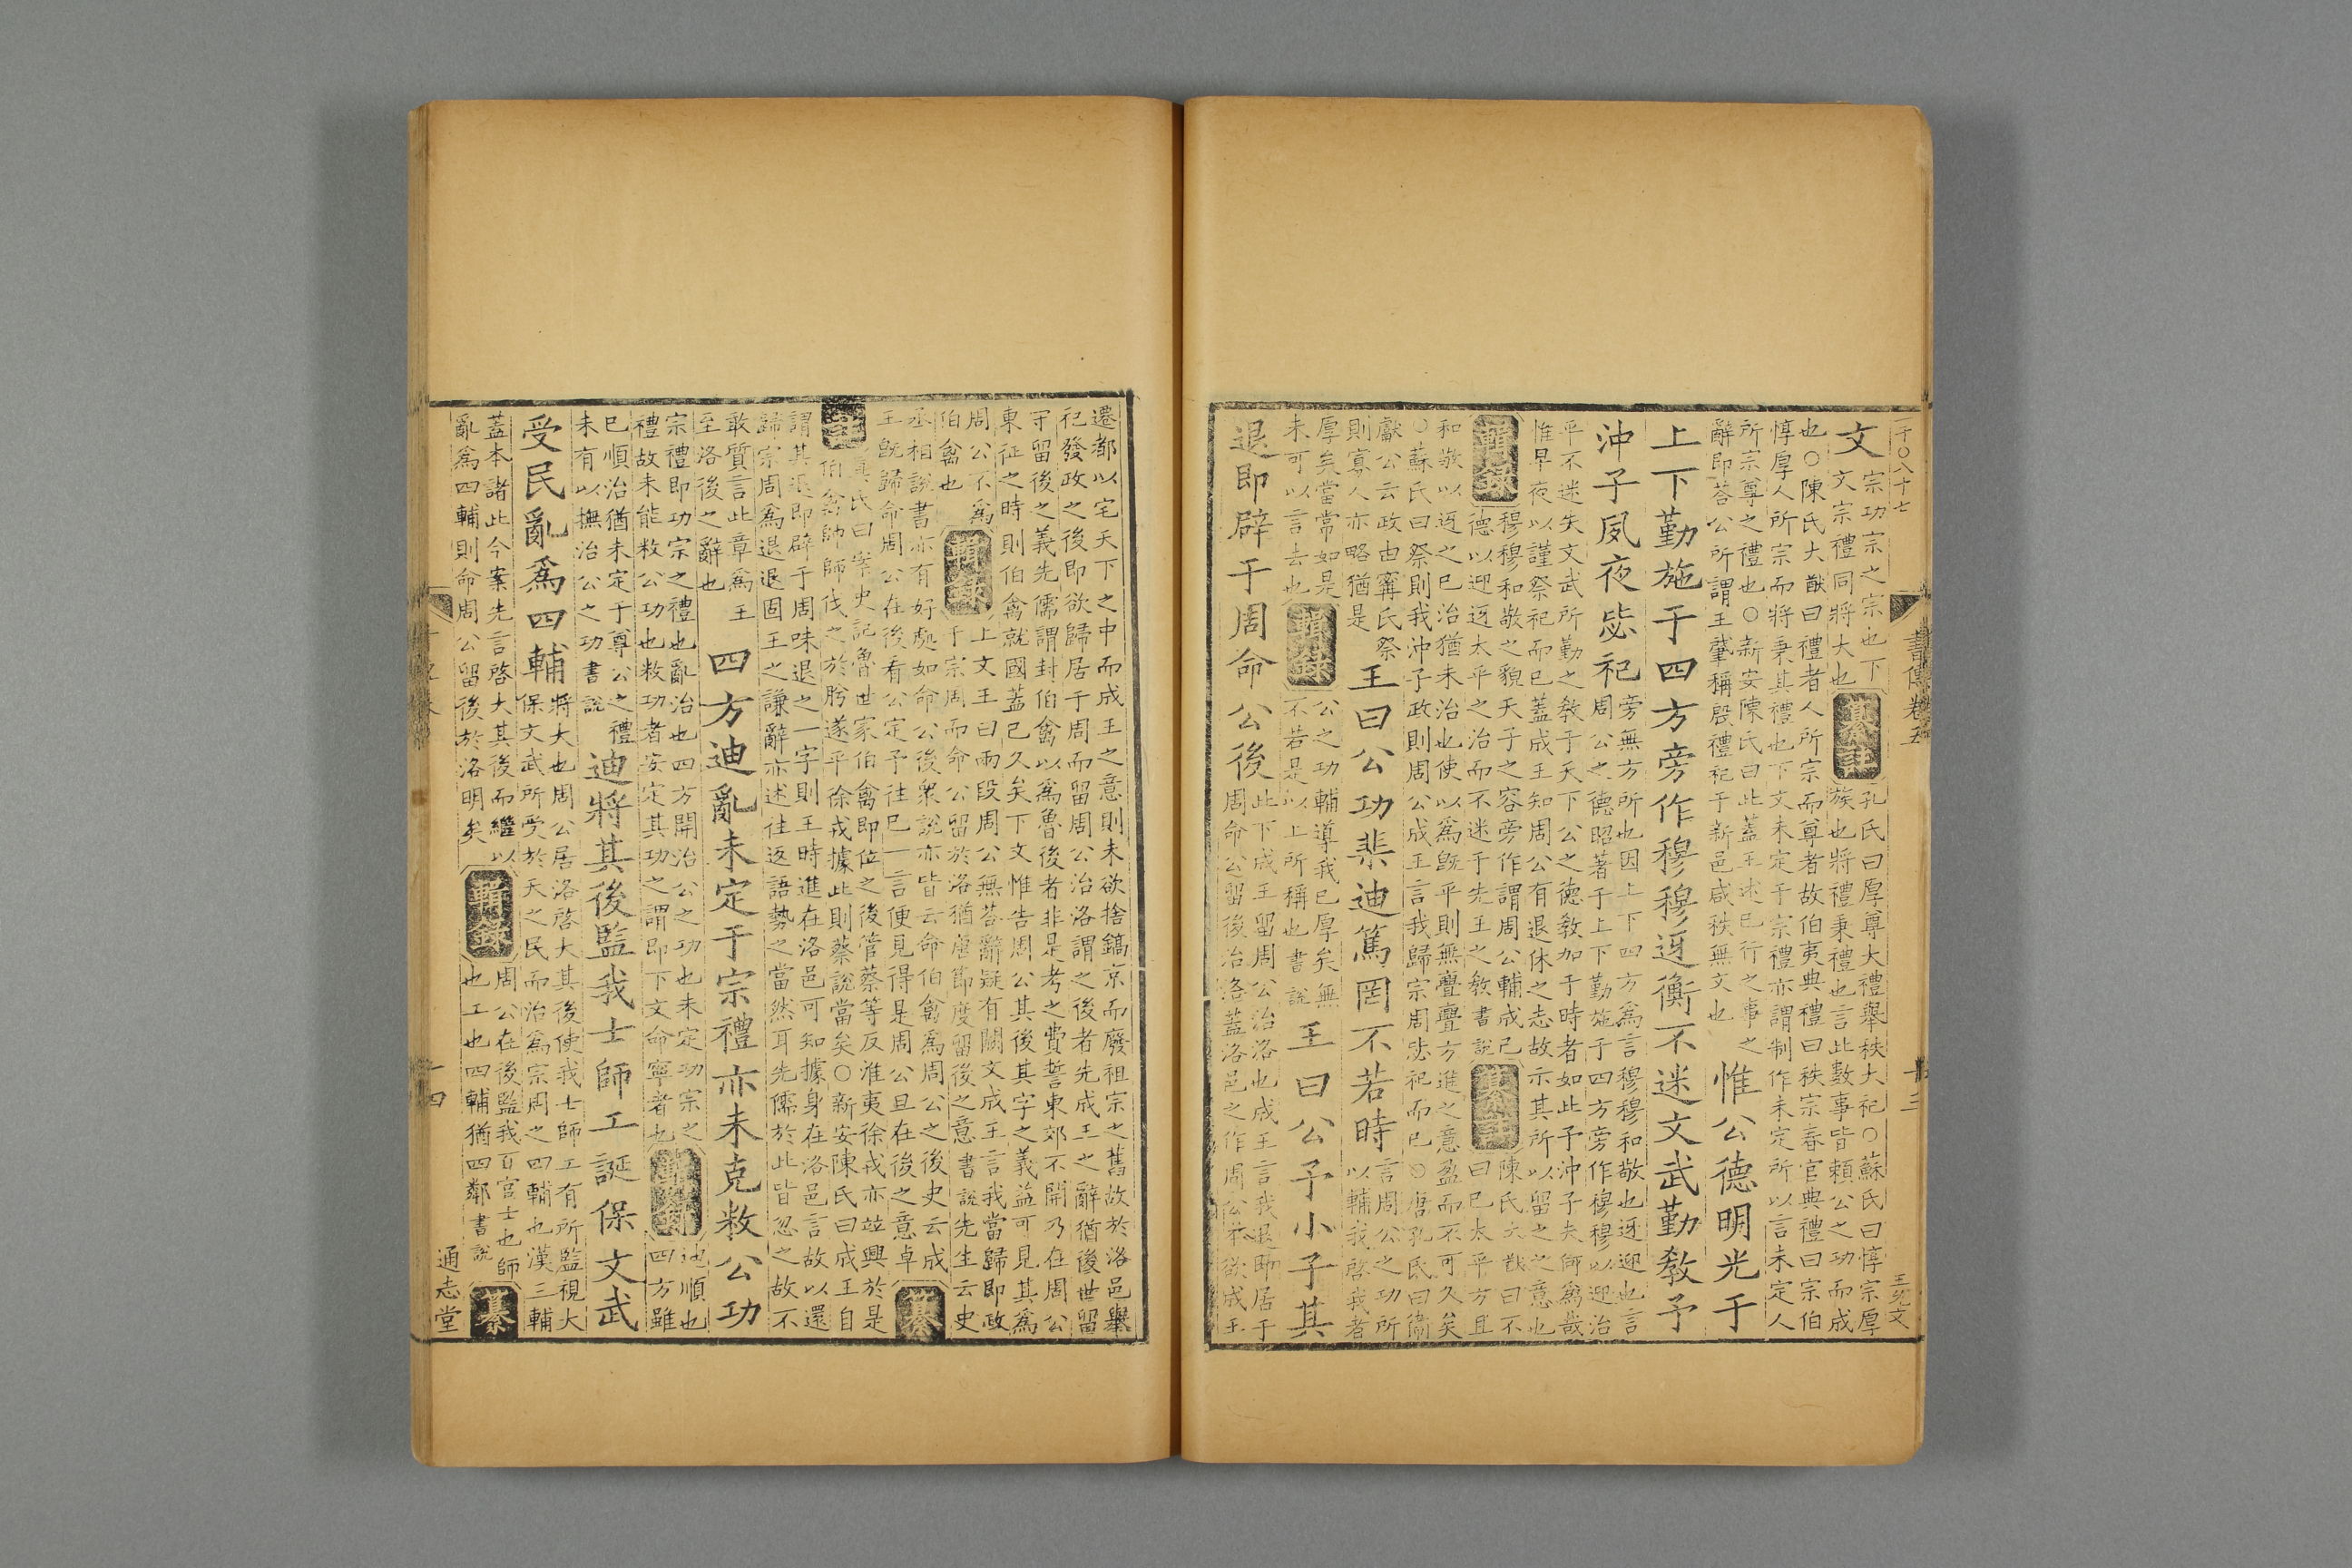 千〇八十七
書傳卷五
十三
王允文
文宗功宗之宗也下
文宗禮同將大也纂註孔氏曰厚尊大禮舉秩大祀〇蘇氏曰惇宗厚
族也將禮秉禮也言此數事皆頼公之功而成
也〇陳氏大猷曰禮者人所宗而尊者故伯夷典禮曰秩宗春官典禮曰宗伯
惇厚人所宗而將秉其禮也下文未定于宗禮亦謂制作未定所以言未定人
所宗尊之禮也〇新安陳氏曰此蓋王述已行之事之
辭即荅公所謂王肇稱殷禮祀于新邑咸秩無文也
惟公德明光于
上下勤施于四方旁作穆穆迓衡不迷文武勤敎予
沖子夙夜毖祀旁無方所也因上下四方爲言穆穆和敬也迓迎也言
周公之德昭著于上下勤施于四方旁作穆穆以迎治
平不迷失文武所勤之敎于天下公之德敎加于時者如此予沖子夫師爲哉
惟早夜以謹祭祀而已蓋成王知周公有退休之志故示其所以留之之意也
輯錄穆穆和敬之貌天子之容旁作謂周公輔成已
德以迎迓太平之治而不迷于先王之敎書說纂註陳氏大猷曰不
曰已太平方且
和敬以迓之已治猶未治也使以爲旣平則無亹亹方進之意盈而不可久矣
〇蘇氏曰祭則我沖子政則周公成王言我歸宗周毖祀而已〇唐孔氏曰衞
獻公云政由甯氏祭
則寡人亦略猶是
王曰公功棐迪篤罔不若時言周公之功所
以輔我啓我者
厚矣當常如是
未可以言去也輯錄公之功輔導我已厚矣無
不若是以上所稱也書說
王曰公予小子其
退即辟于周命公後此下成王留周公治洛也成王言我退即居于
周命公留後治洛蓋洛邑之作周公本欲成王
遷都以宅天下之中而成王之意則未欲捨鎬京而廢祖宗之舊故於洛邑舉
祀發政之後即欲歸居于周而留周公治洛謂之後者先成王之辭猶後世留
守留後之義先儒謂封伯禽以爲魯後者非是考之費誓東郊不開乃在周公
東征之時則伯禽就國蓋已久矣下文惟告周公其後其字之義益可見其爲
周公不爲
伯禽也輯錄上文王曰兩段周公無荅辭疑有闕文成王言我當歸即政
于宗周而命公留於洛猶唐節度留後之意書說先生云史
丞相說書亦有好處如命公後衆說亦皆云命伯禽爲周公之後史云成
王旣歸命周公在後看公定予往已一言便見得是周公且在後之意卓纂
註眞氏曰案史記魯世家伯禽即位之後管蔡等反淮夷徐戎亦竝興於是
伯禽帥師伐之於肸遂平徐戎據此則蔡說當矣〇新安陳氏曰成王自
謂其退即辟于周味退之一字則王時進在洛邑可知據身在洛邑言故以還
歸宗周爲退退固王之謙辭亦述往返語勢之當然耳先儒於此皆忽之故不
敢質言此章爲王
至洛後之辭也
四方迪亂未定于宗禮亦未克敉公功
宗禮即功宗之禮也亂治也四方開治公之功也未定功宗之
禮故未能敉公功也敉功者安定其功之謂即下文命寧者也輯錄迪順也
四方雖
已順治猶未定于尊公之禮
未有以撫治公之功書說
迪將其後監我士師工誕保文武
受民亂爲四輔將大也周公居洛啓大其後使我士師工有所監視大
保文武所受於天之民而治爲宗周之四輔也漢三輔
蓋本諸此今案先言啓大其後而繼以
亂爲四輔則命周公留後於洛明矣輯錄周公在後監我百官士也師
也工也四輔猶四鄰書說纂
通志堂